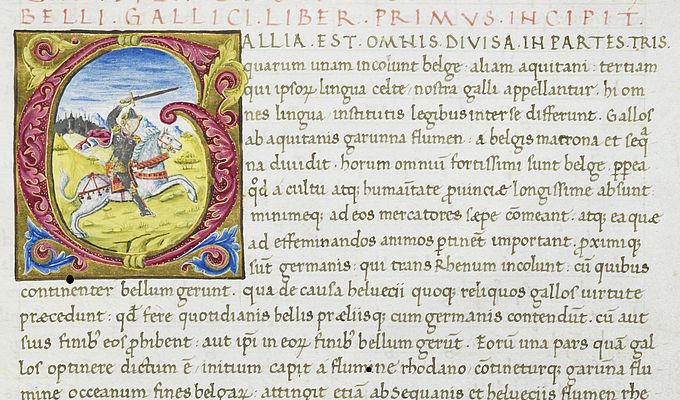 BELLI. GALLICI. LIBER PRIMVS. INCIPIT.
GALLIA. EST. OMNIS. DIVISA. IN PARTES. TRIS.
quarum unam incolunt belge. aliam aquitani: tertiam
qui ipsoꝝ lingua celte, nostra galli appellantur. hi om
nes lingua, institutis legibus inter se differunt. Gallos
ab aquitanis garunna flumen: a belgis matrona et seq̄
na diuidit. horum omniū fortissimi sunt belge. ꝓpea
qd̄ a cultu atq; humāitate ꝓuinciæ longissime absunt
minimeq; ad eos mercatores sæpe cōmeant. atq; ea quæ
ad effeminandos animos ꝑtinēt important. ꝓximiq;
sūt germanis. qui trans Rhenum incolunt. cū quibus
continenter bellum gerunt. qua de causa heluecii quoq; reliquos gallos uirtute
præcedunt: qd̄ fere quotidianis bellis præliisq; cum germanis contendūt. cū aut
suis finib; eos ꝓhibent: aut ipi in eoꝝ finib; bellum gerūt. Eorū una pars quā gal
los optinere dictum ē, initium capit a flumine rhodano, cōtineturq; garūna flu-
mine occeanum fines belgaꝝ: attingit etiā ab Sequanis et heluetiis flumen rhe-